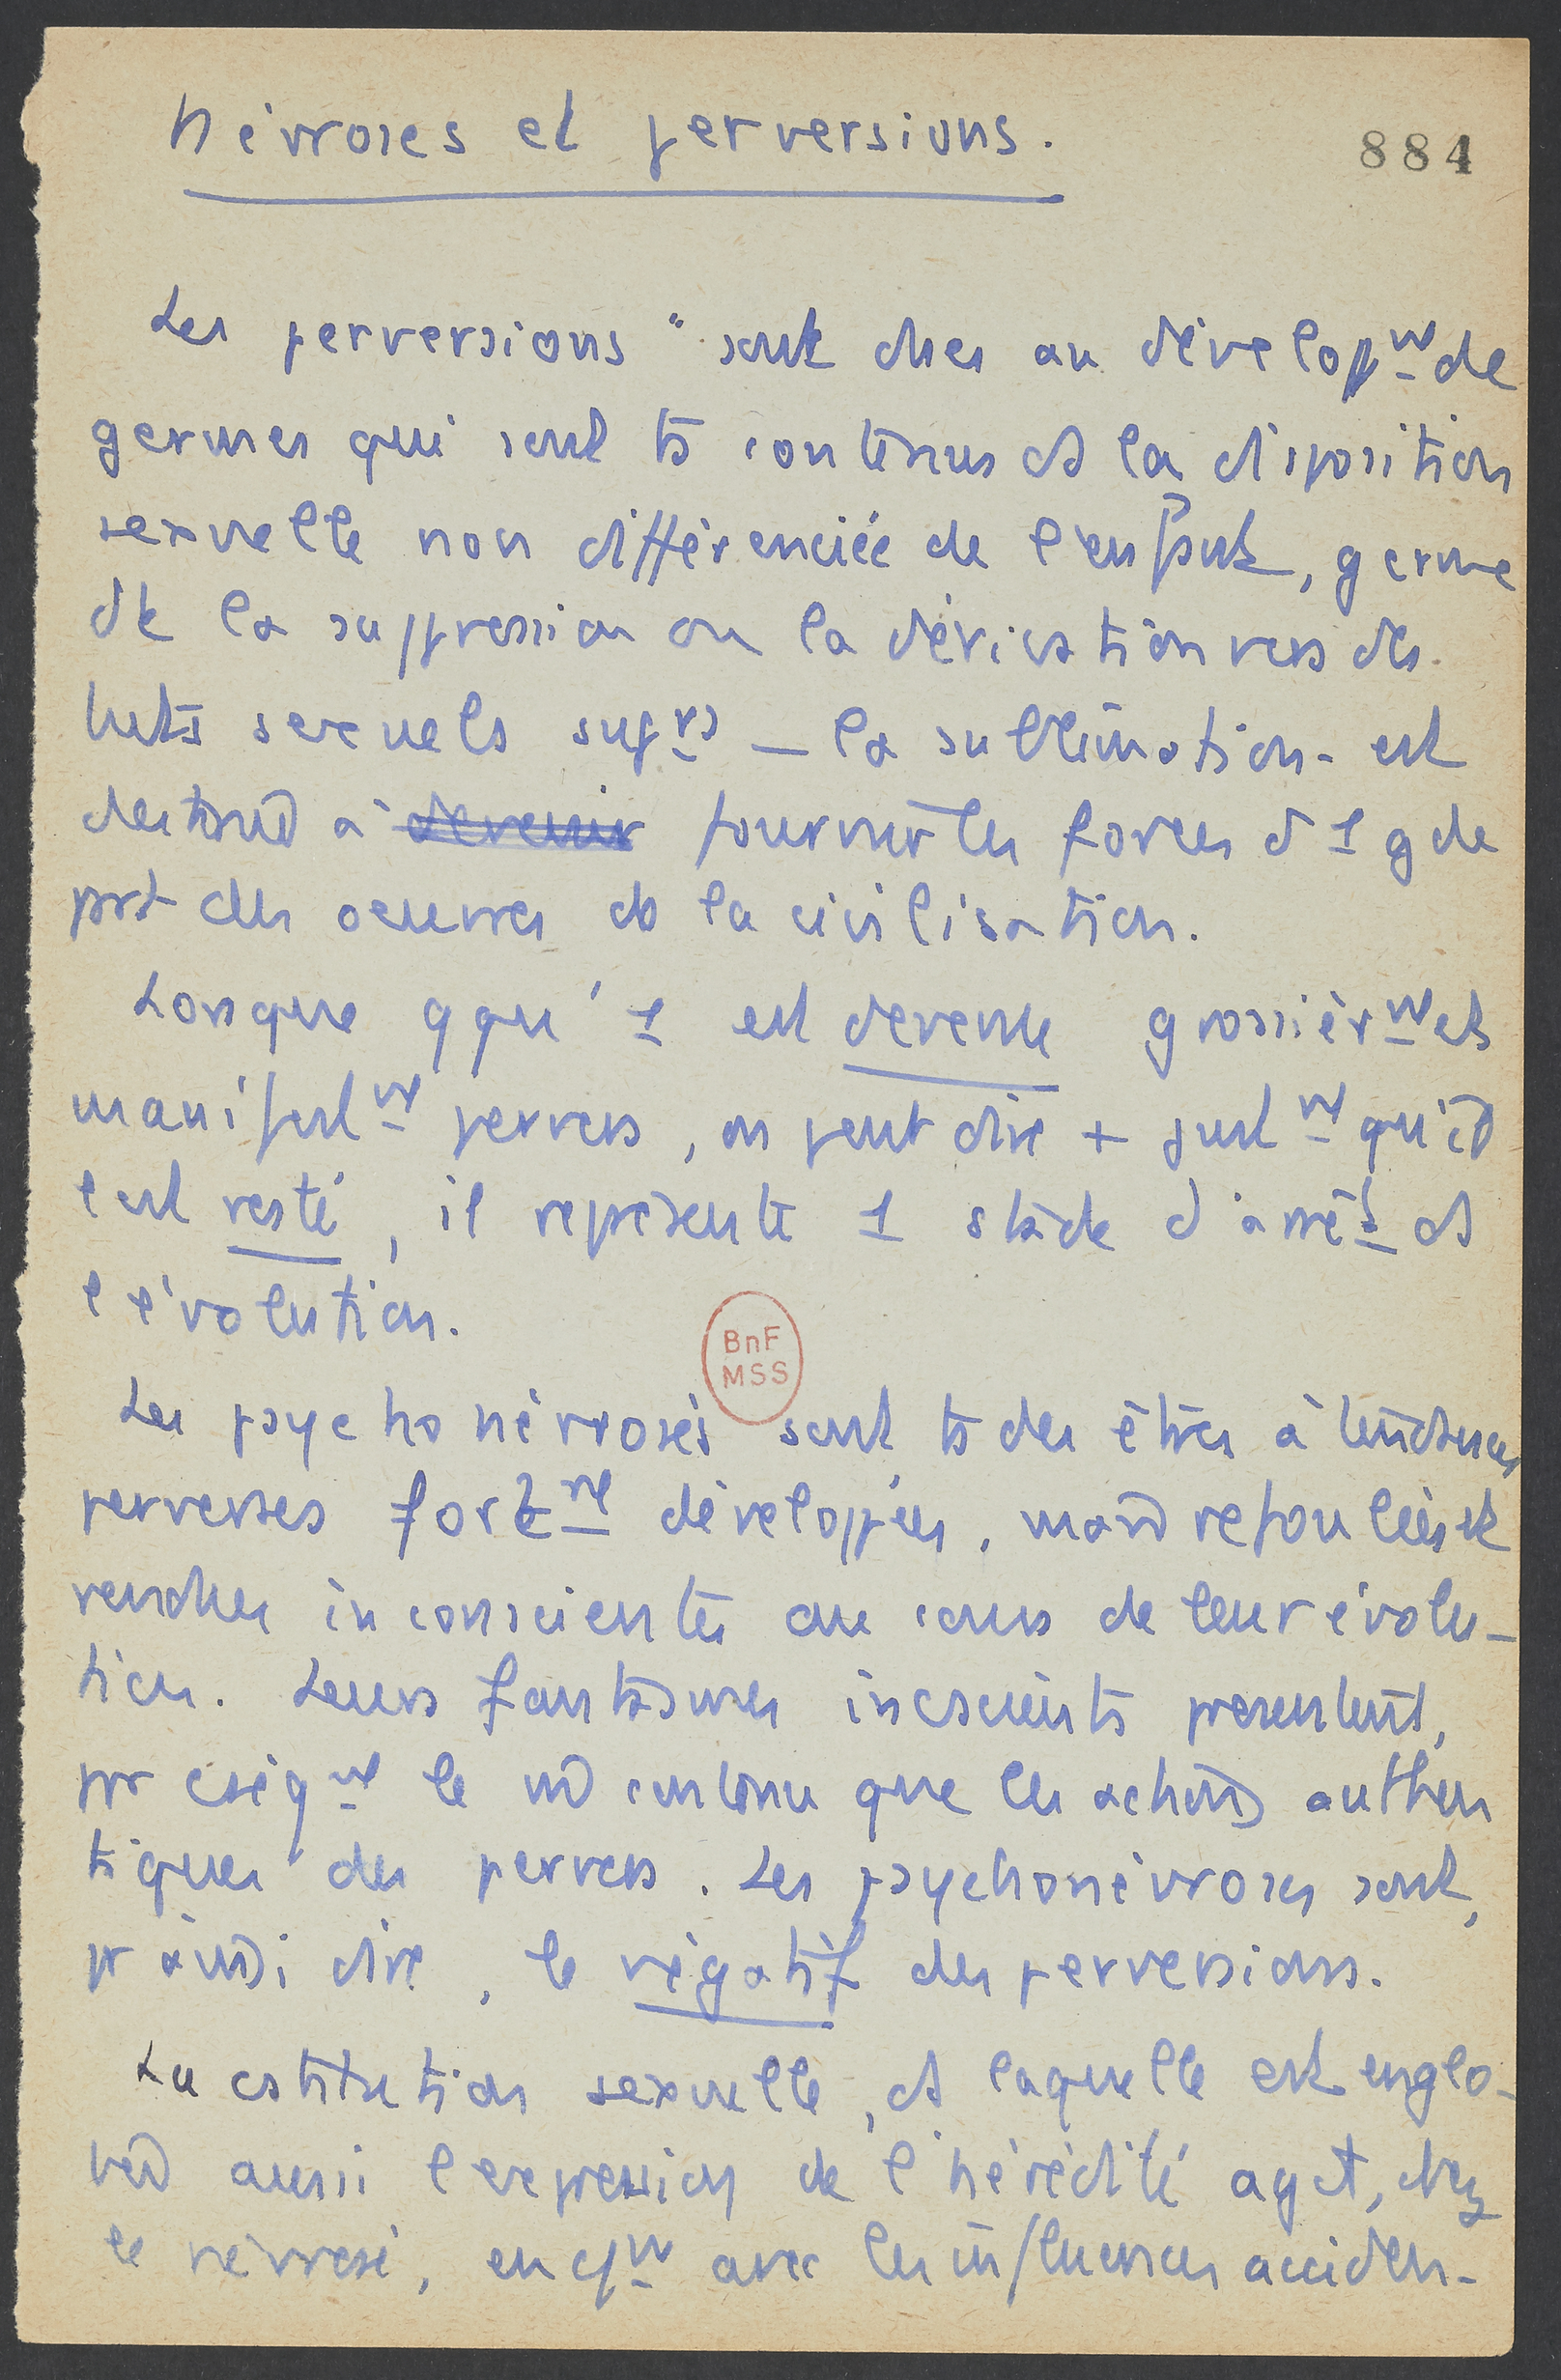 Névroses et perversions.
884
Les perversions "sont dues au développt de
germes qui sont ts contenus ds la disposition
sexuelle non différenciée de l'enfant, germe
dt la suppression ou la dérivation vers des
buts sexuels suprs — la sublimation - est
destiné à devenir fournir les forces d'1 gde
part des oeuvres de la civilisation.
Lorsque qqu'1 est devenu grossièrmt et
manifestmt pervers, on peut dire + justmt qu'il
l'est resté, il représente 1 stade d'arrêt ds
l'évolution.
BnF
MSS
Les psychonévrosés sont ts des êtres à tendances
perverses fortmt développées, mais refoulées et
rendues inconscientes au cours de leur évolu-
tion. Leurs fantasmes incscients présentent,
par cséqut le m contenu que les actions authen
tiques des pervers. Les psychonévroses sont,
pr ainsi dire, le négatif des perversions.
La cstitution sexuelle, ds laquelle est englo-
bée aussi l'expression de l'hérédité agit, chez
le névrosé, en ct avec les influences acciden-